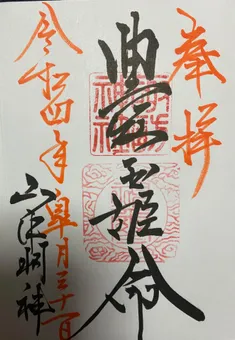 奉拝
豊玉姫命
諏訪神社
令和四年皐月三十一日